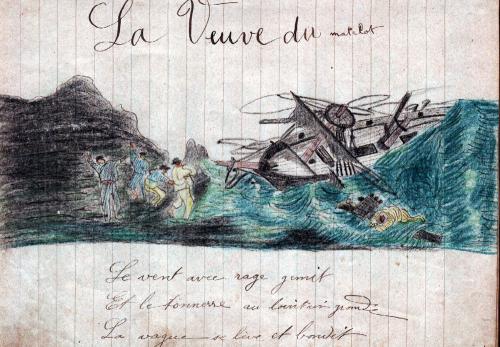 La Veuve du matelot
Le vent avec rage gemit
Et le tonnerre au lointin gronde
La vague se lève et bondit